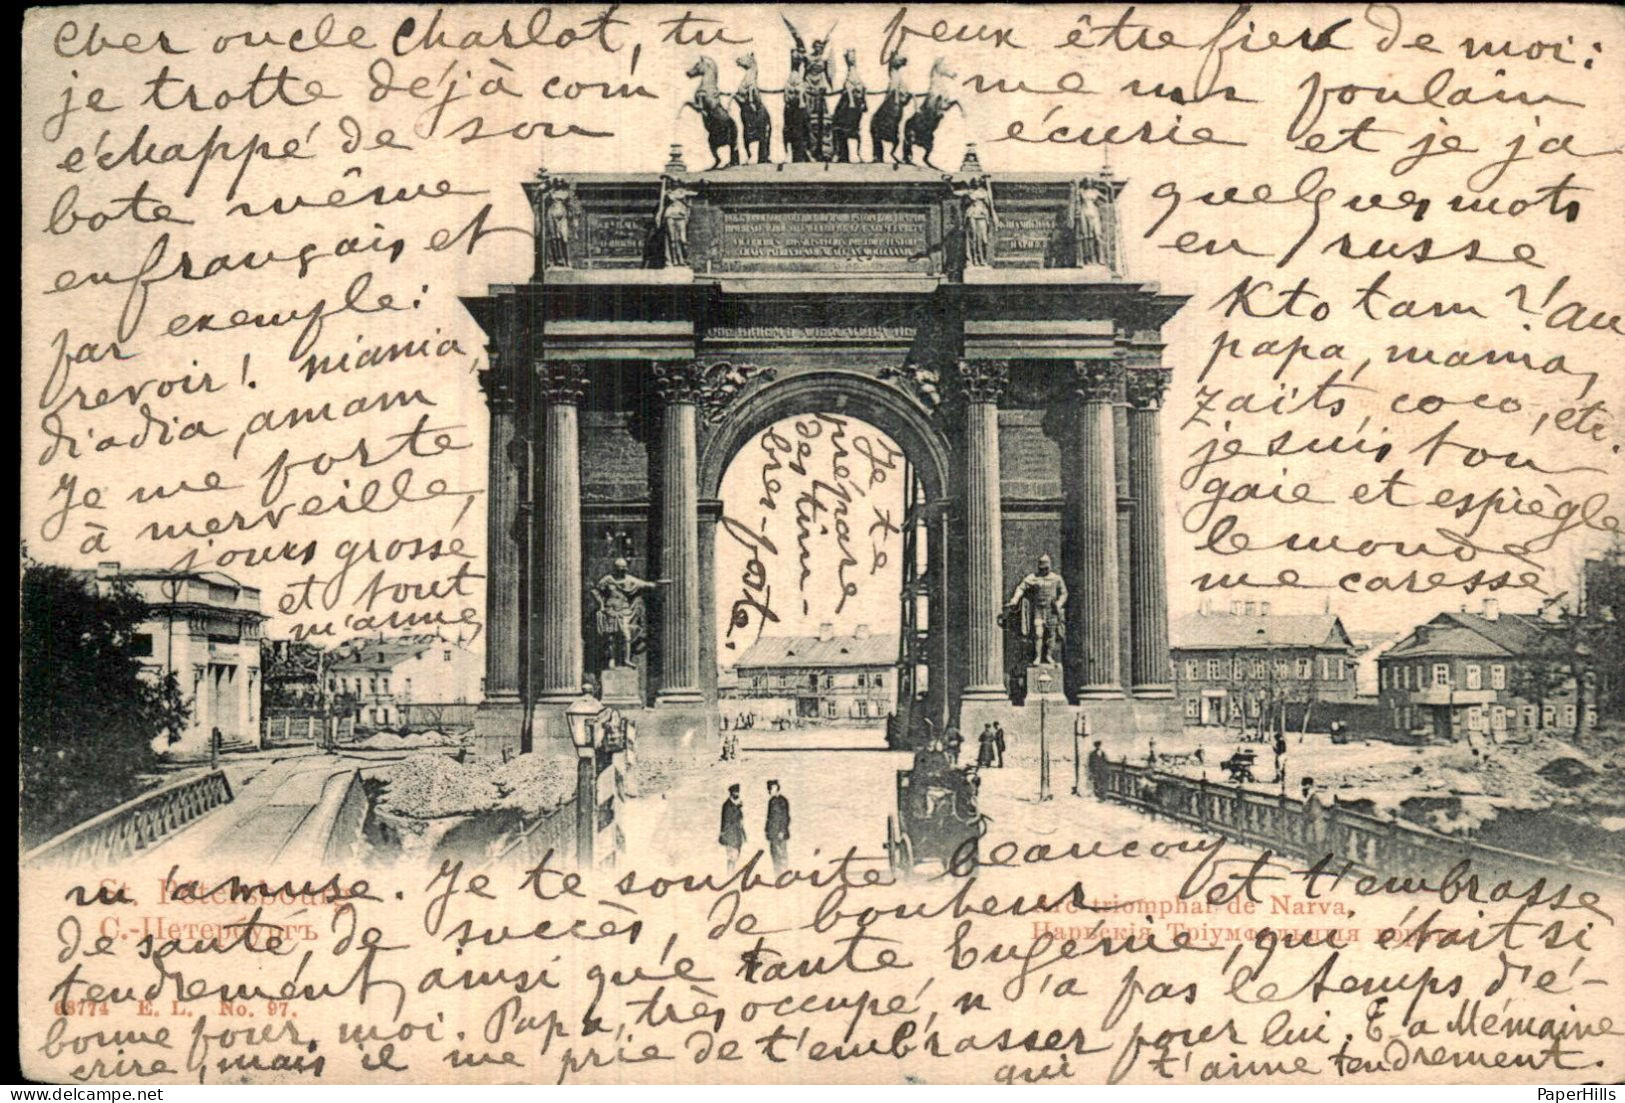 cher oncle Charlot, tu peux être fier de moi:
je trotte déjà com me un poulain
échappé de son écurie et je ja
bote même quelques mots
en français et en russe
par exemple: Kto tam?! au
revoir! niania, papa, mama,
diadia, amam zaïts, coco, etc.
Je me porte je suis ton
à merveille, gaie et espiègle
jours grosse le monde
et tout me caresse,
m'aime
Je te
prépare
des tim-
bres-poste.
m'amuse. Je te souhaite beaucoup
de santé, de succès, de bonheur et t'embrasse
tendrement, ainsi qu'e tante Eugénie, qui était si
bonne pour moi. Papa, très occupé, n'a pas le temps d'é-
crire, mais il me prie de t'embrasser pour lui. E a Mémaine
qui t'aime tendrement.
St. Pétersbourg
С.-Петербургъ
68774 E. L. No. 97.
Arc triomphal de Narva.
Нарвскія Тріумфальныя ворота
PaperHills